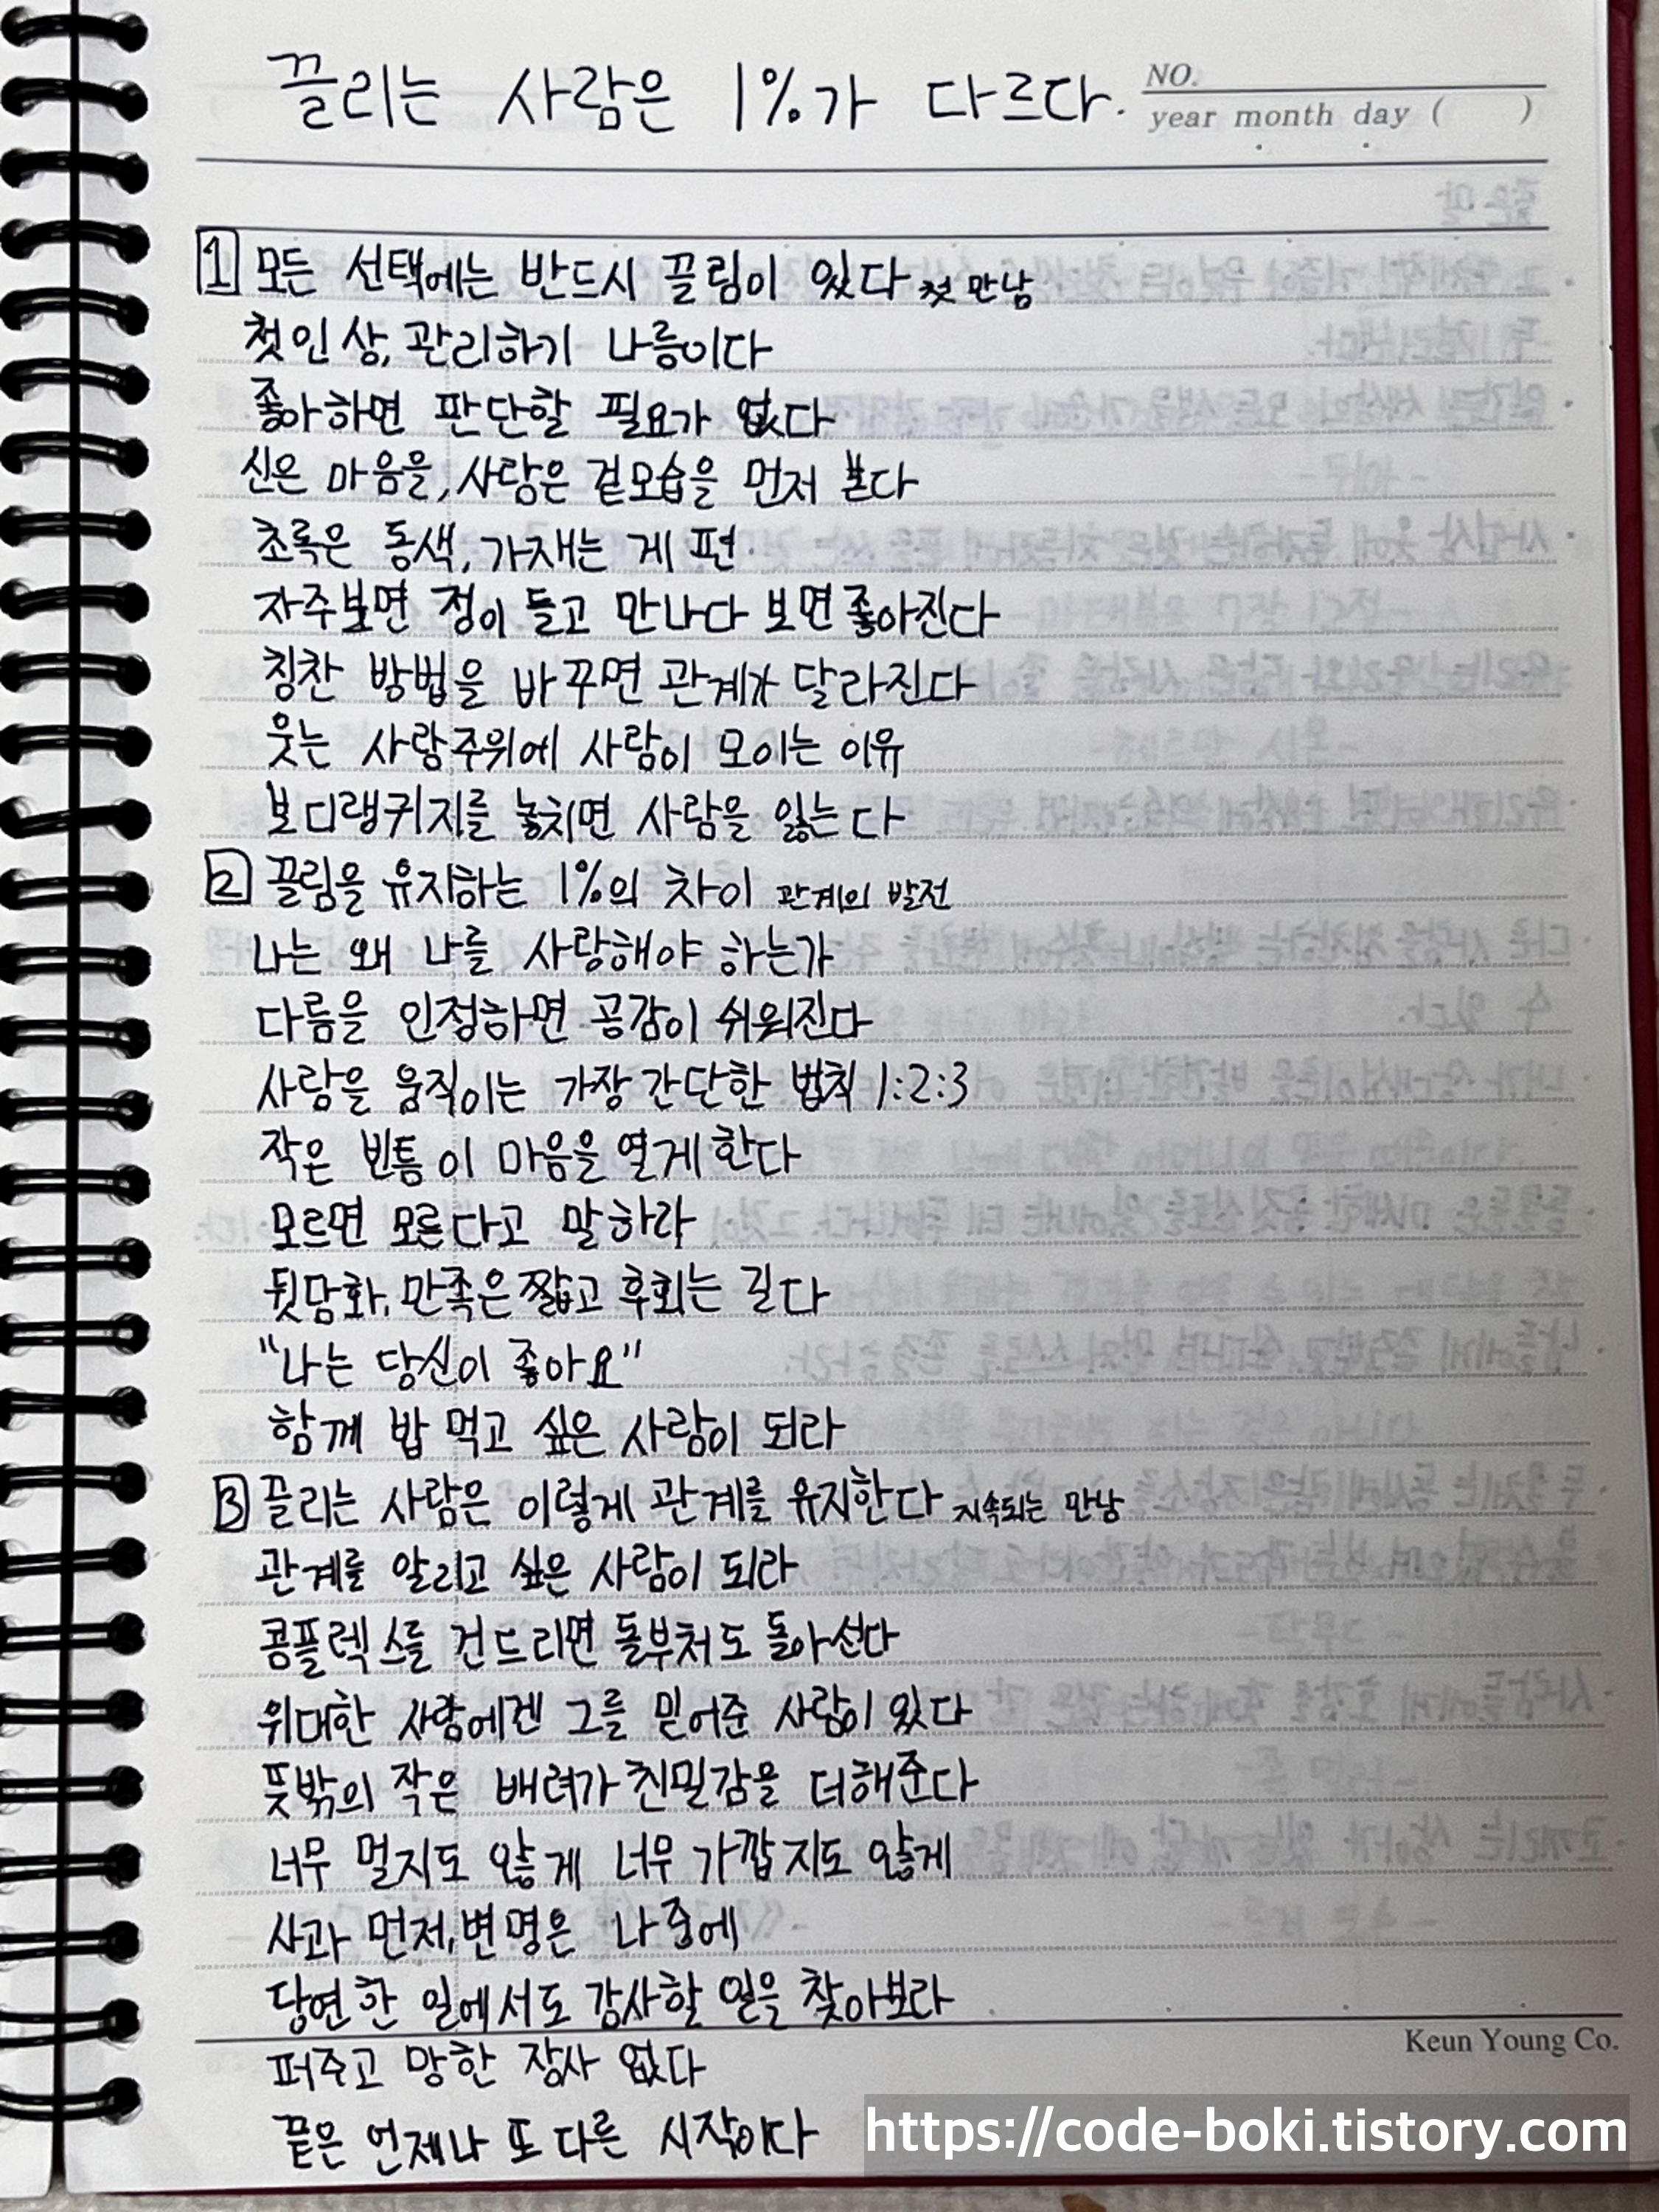 끌리는 사람은 1%가 다르다.
NO.
year month day ( )
1 모든 선택에는 반드시 끌림이 있다 첫 만남
첫인상, 관리하기 나름이다
좋아하면 판단할 필요가 없다
신은 마음을, 사람은 겉모습을 먼저 본다
초록은 동색, 가재는 게 편
자주보면 정이 들고 만나다 보면 좋아진다
칭찬 방법을 바꾸면 관계가 달라진다
웃는 사람주위에 사람이 모이는 이유
보디랭귀지를 놓치면 사람을 잃는다
2 끌림을 유지하는 1%의 차이 관계의 발전
나는 왜 나를 사랑해야 하는가
다름을 인정하면 공감이 쉬워진다
사람을 움직이는 가장 간단한 법칙 1:2:3
작은 빈틈이 마음을 열게 한다
모르면 모른다고 말하라
뒷담화, 만족은 짧고 후회는 길다
"나는 당신이 좋아요"
함께 밥 먹고 싶은 사람이 되라
3 끌리는 사람은 이렇게 관계를 유지한다 지속되는 만남
관계를 알리고 싶은 사람이 되라
콤플렉스를 건드리면 돌부처도 돌아선다
위대한 사람에겐 그를 믿어준 사람이 있다
뜻밖의 작은 배려가 친밀감을 더해준다
너무 멀지도 않게 너무 가깝지도 않게
사과 먼저, 변명은 나중에
당연한 일에서도 감사할 일을 찾아보라
퍼주고 망한 장사 없다
끝은 언제나 또 다른 시작이다
Keun Young Co.
https://code-boki.tistory.com